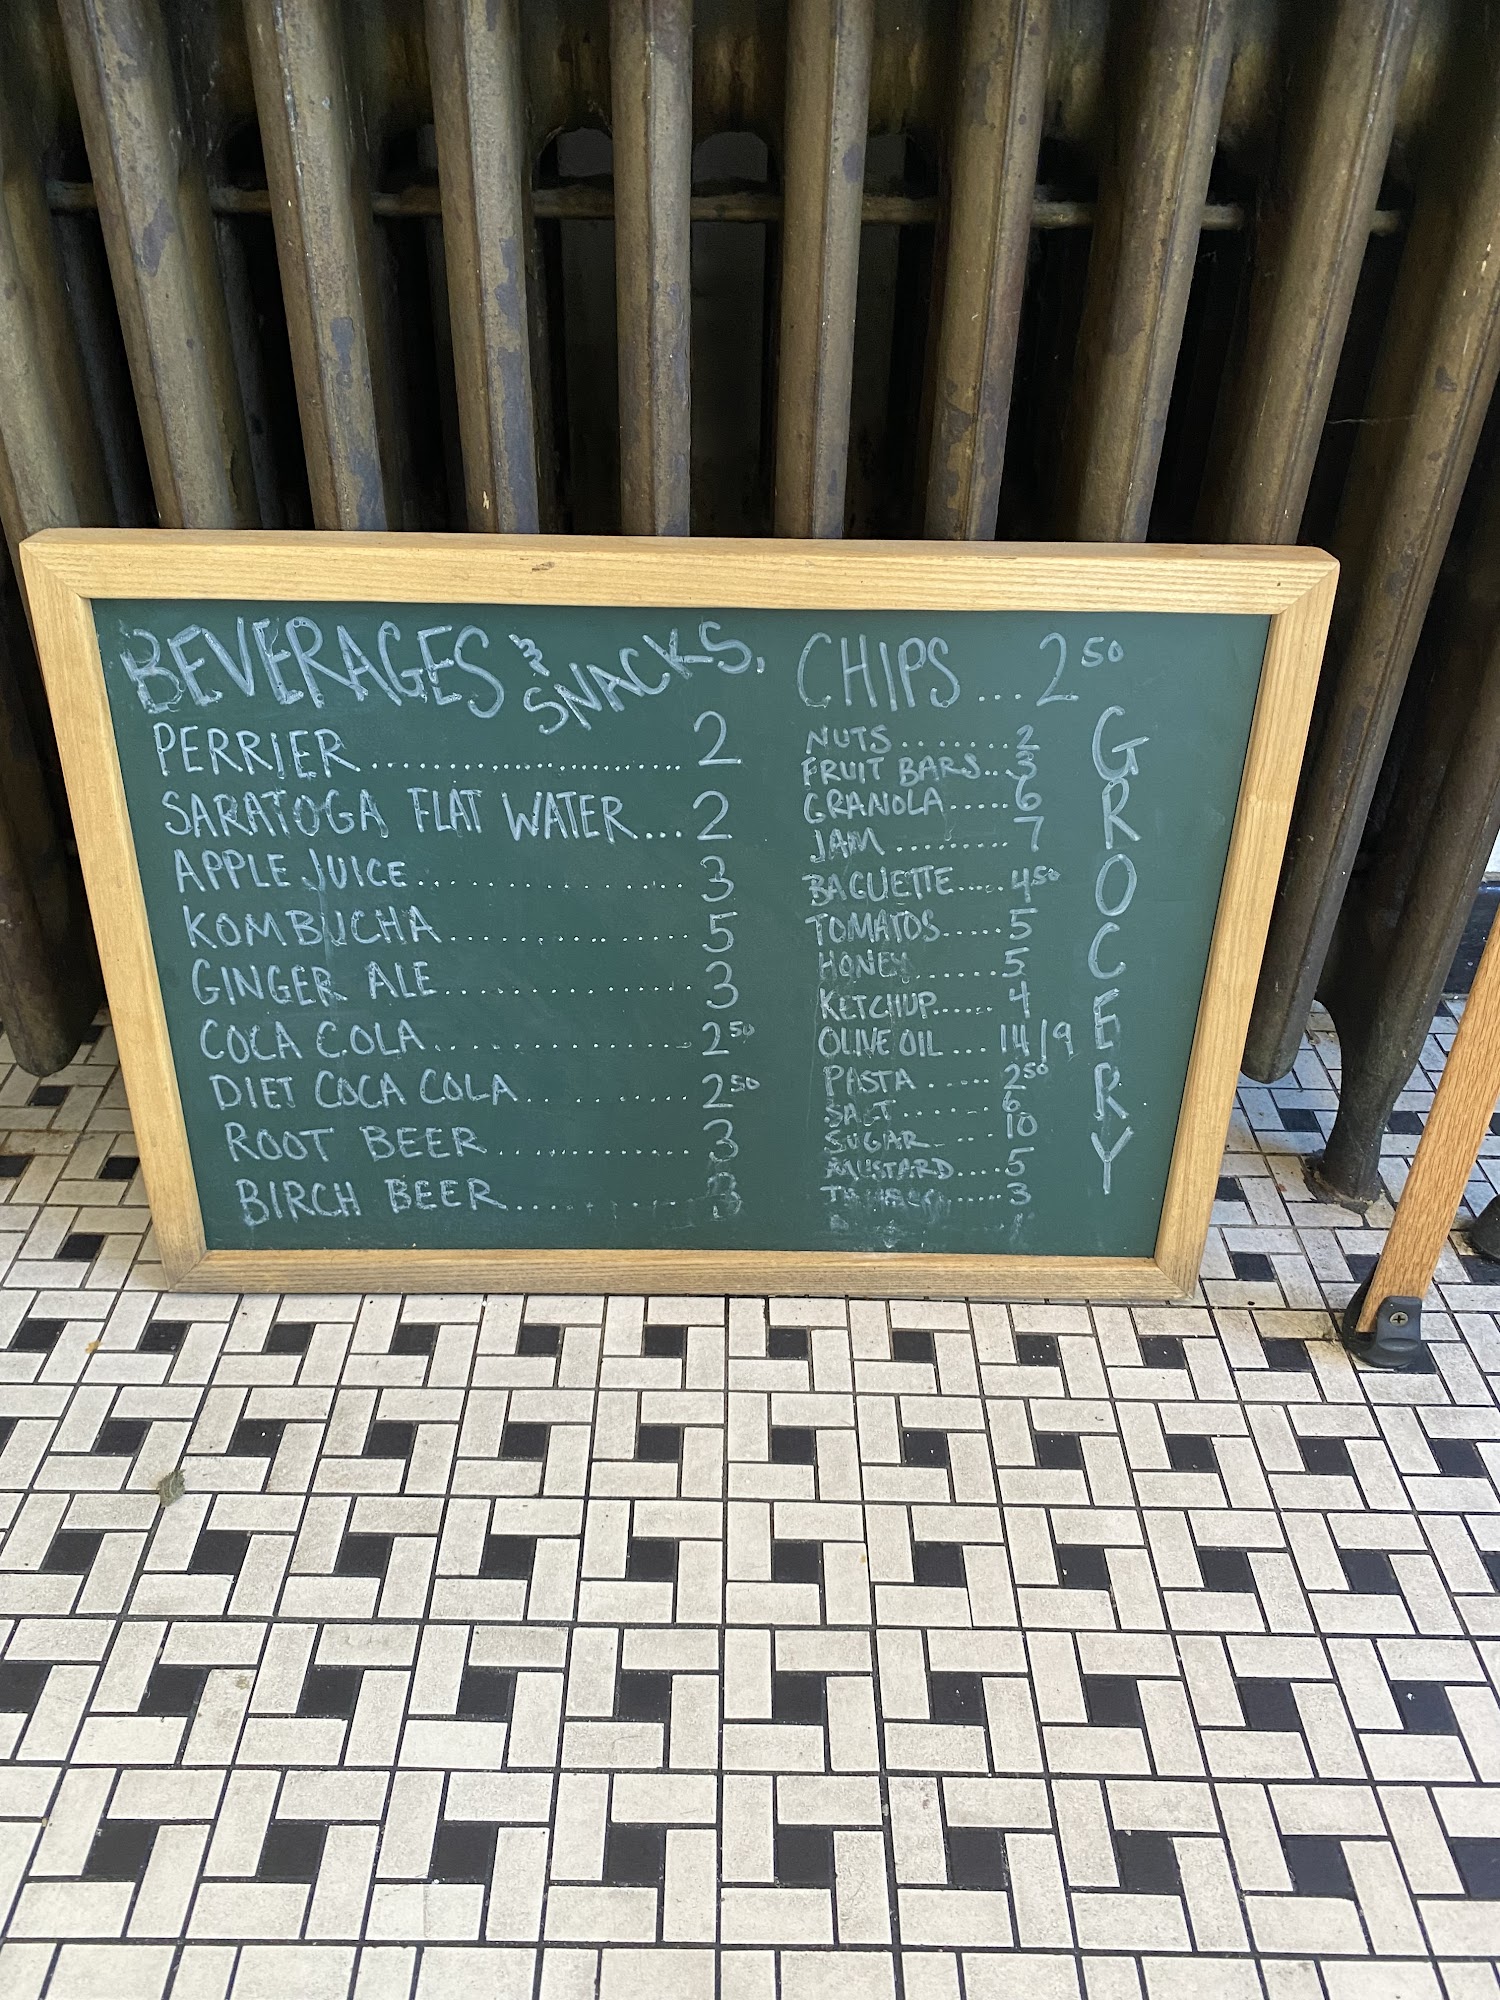 BEVERAGES & SNACKS.
PERRIER...................... 2
SARATOGA FLAT WATER... 2
APPLE JUICE................. 3
KOMBUCHA................. 5
GINGER ALE................ 3
COCA COLA................ 2 50
DIET COCA COLA.......... 2 50
ROOT BEER............... 3
BIRCH BEER............. 3
CHIPS ... 2 50
NUTS ....... 2
FRUIT BARS.. 3
GRANOLA..... 6
JAM ......... 7
BAGUETTE..... 4 50
TOMATOS..... 5
HONEY...... 5
KETCHUP...... 4
OLIVE OIL ... 14/9
PASTA ..... 2 50
SALT ...... 6
SUGAR .... 10
MUSTARD.... 5
...... 3
GROCERY